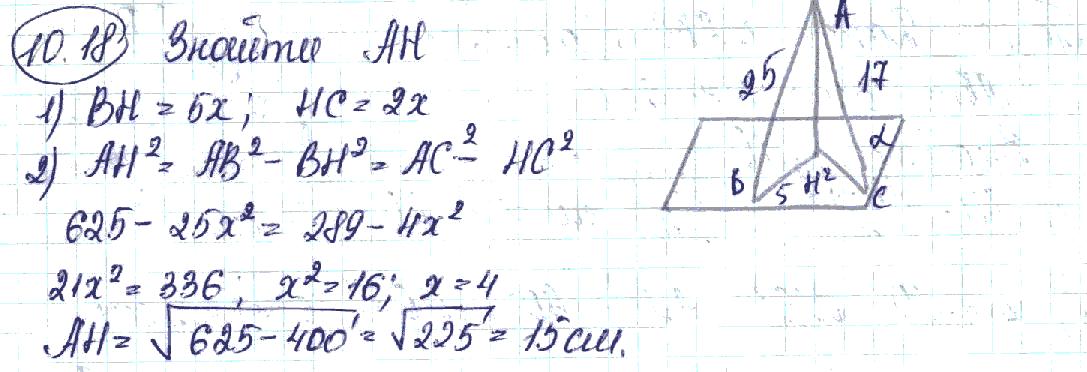 10.18 Знайти AH
1) BH = 5x; HC = 2x
2) AH² = AB² - BH² = AC² - HC²
625 - 25x² = 289 - 4x²
21x² = 336; x² = 16; x = 4
AH = √625-400 = √225 = 15 см.
A
25
17
α
B
5
H
2
C